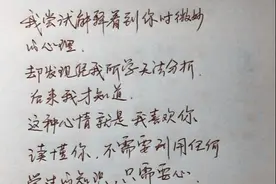 我尝试解释看到你时微妙
的心理.
却发现凭我所学无法分析.
后来我才知道.
这种心情就是我喜欢你
读懂你,不需要利用任何
学过的知识,只需要心.